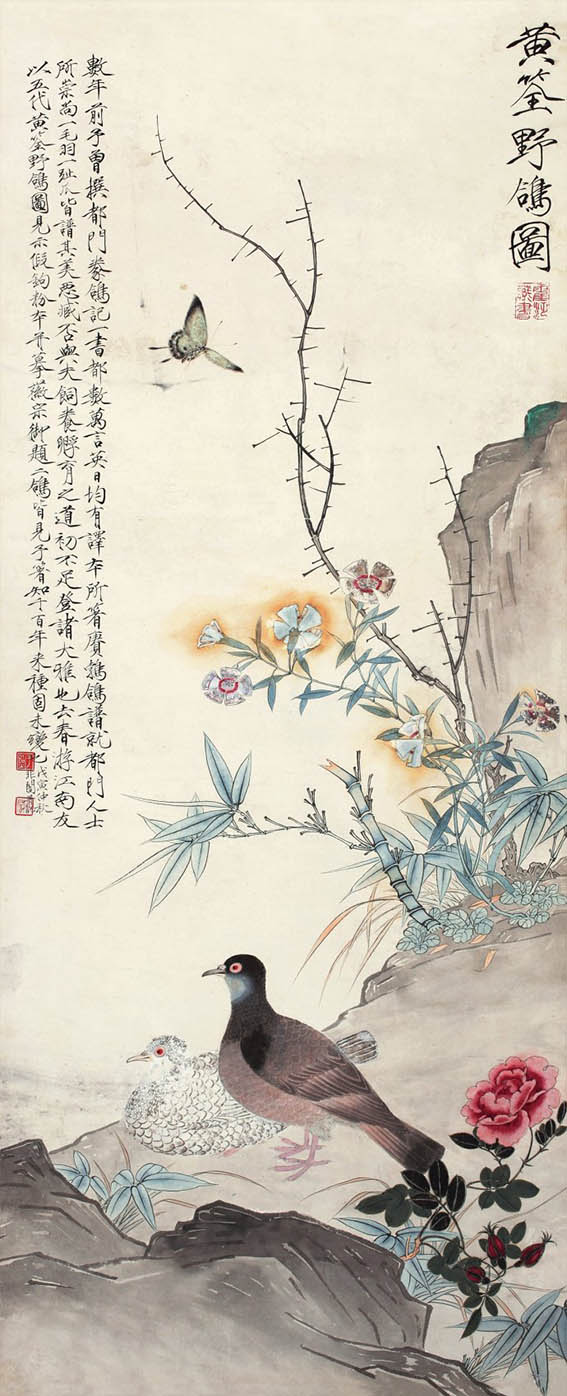 黄筌野鴿圖
數年前予曾撰都門豢鴿記一書都數萬言英日均有譯本所箸賡鵓鴿譜就都門人士
所崇尚一毛羽一趾爪皆譜其美惡臧否與夫飼養孵育之道初不足登諸大雅也去春游江南友
以五代黄筌野鴿圖見示假鉤粉本并摹徽宗御題二鴿皆見予箸知千百年來種固未變也
戊寅中秋
非闇